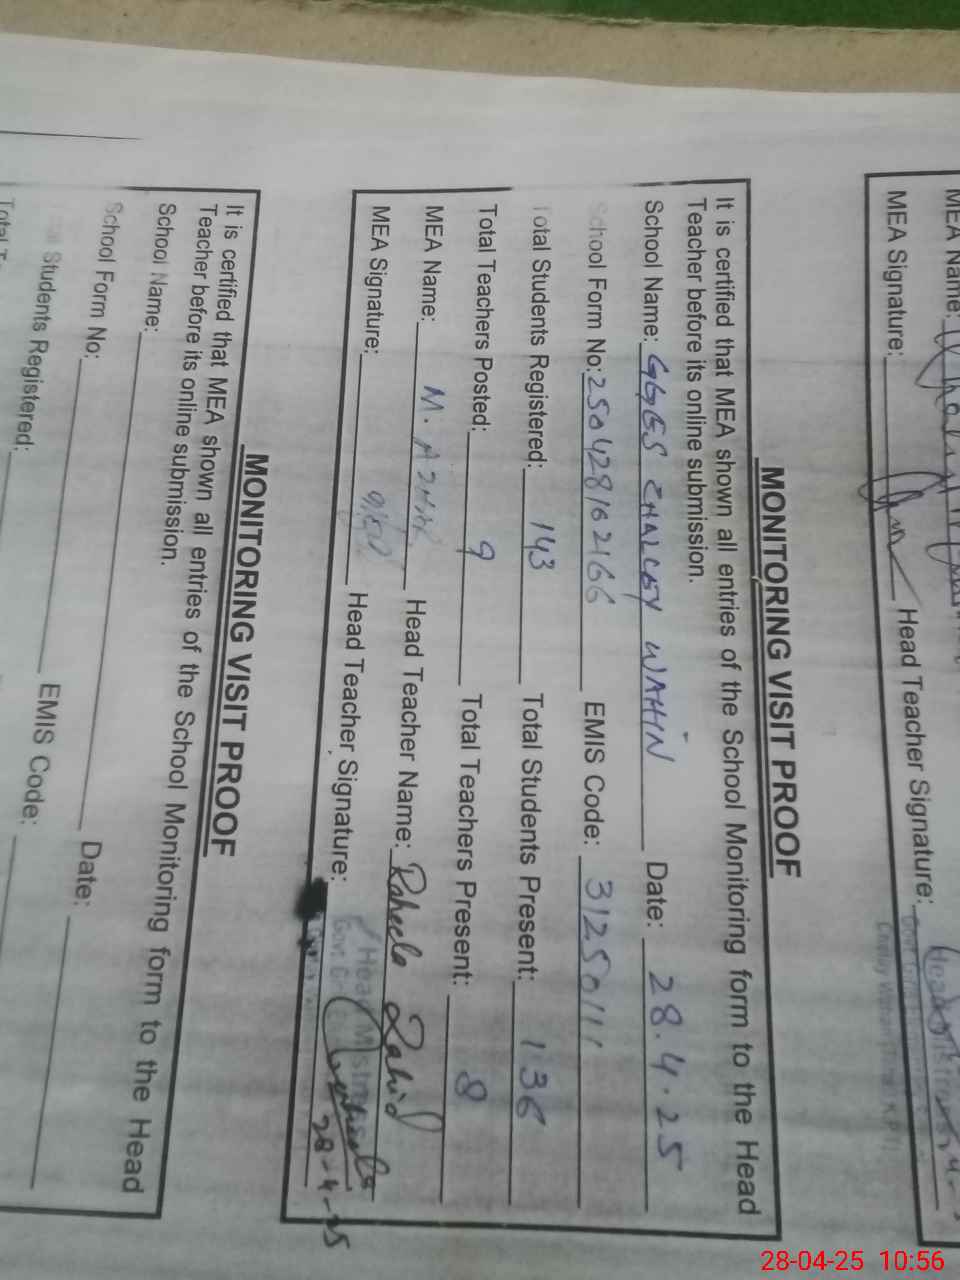 MEA Name:
MEA Signature: Head Teacher Signature:
MONITORING VISIT PROOF
It is certified that MEA shown all entries of the School Monitoring form to the Head
Teacher before its online submission.
School Name: GGES CHALCEY WAHIN Date: 28.4.25
School Form No: 250428162166 EMIS Code: 31250111
Total Students Registered: 143 Total Students Present: 136
Total Teachers Posted: 9 Total Teachers Present: 8
MEA Name: M. Head Teacher Name: Raheela Zahid
MEA Signature: Head Teacher Signature:
28-4-25
MONITORING VISIT PROOF
It is certified that MEA shown all entries of the School Monitoring form to the Head
Teacher before its online submission.
School Name:
School Form No: Date:
Students Registered: EMIS Code:
Total
28-04-25 10:56